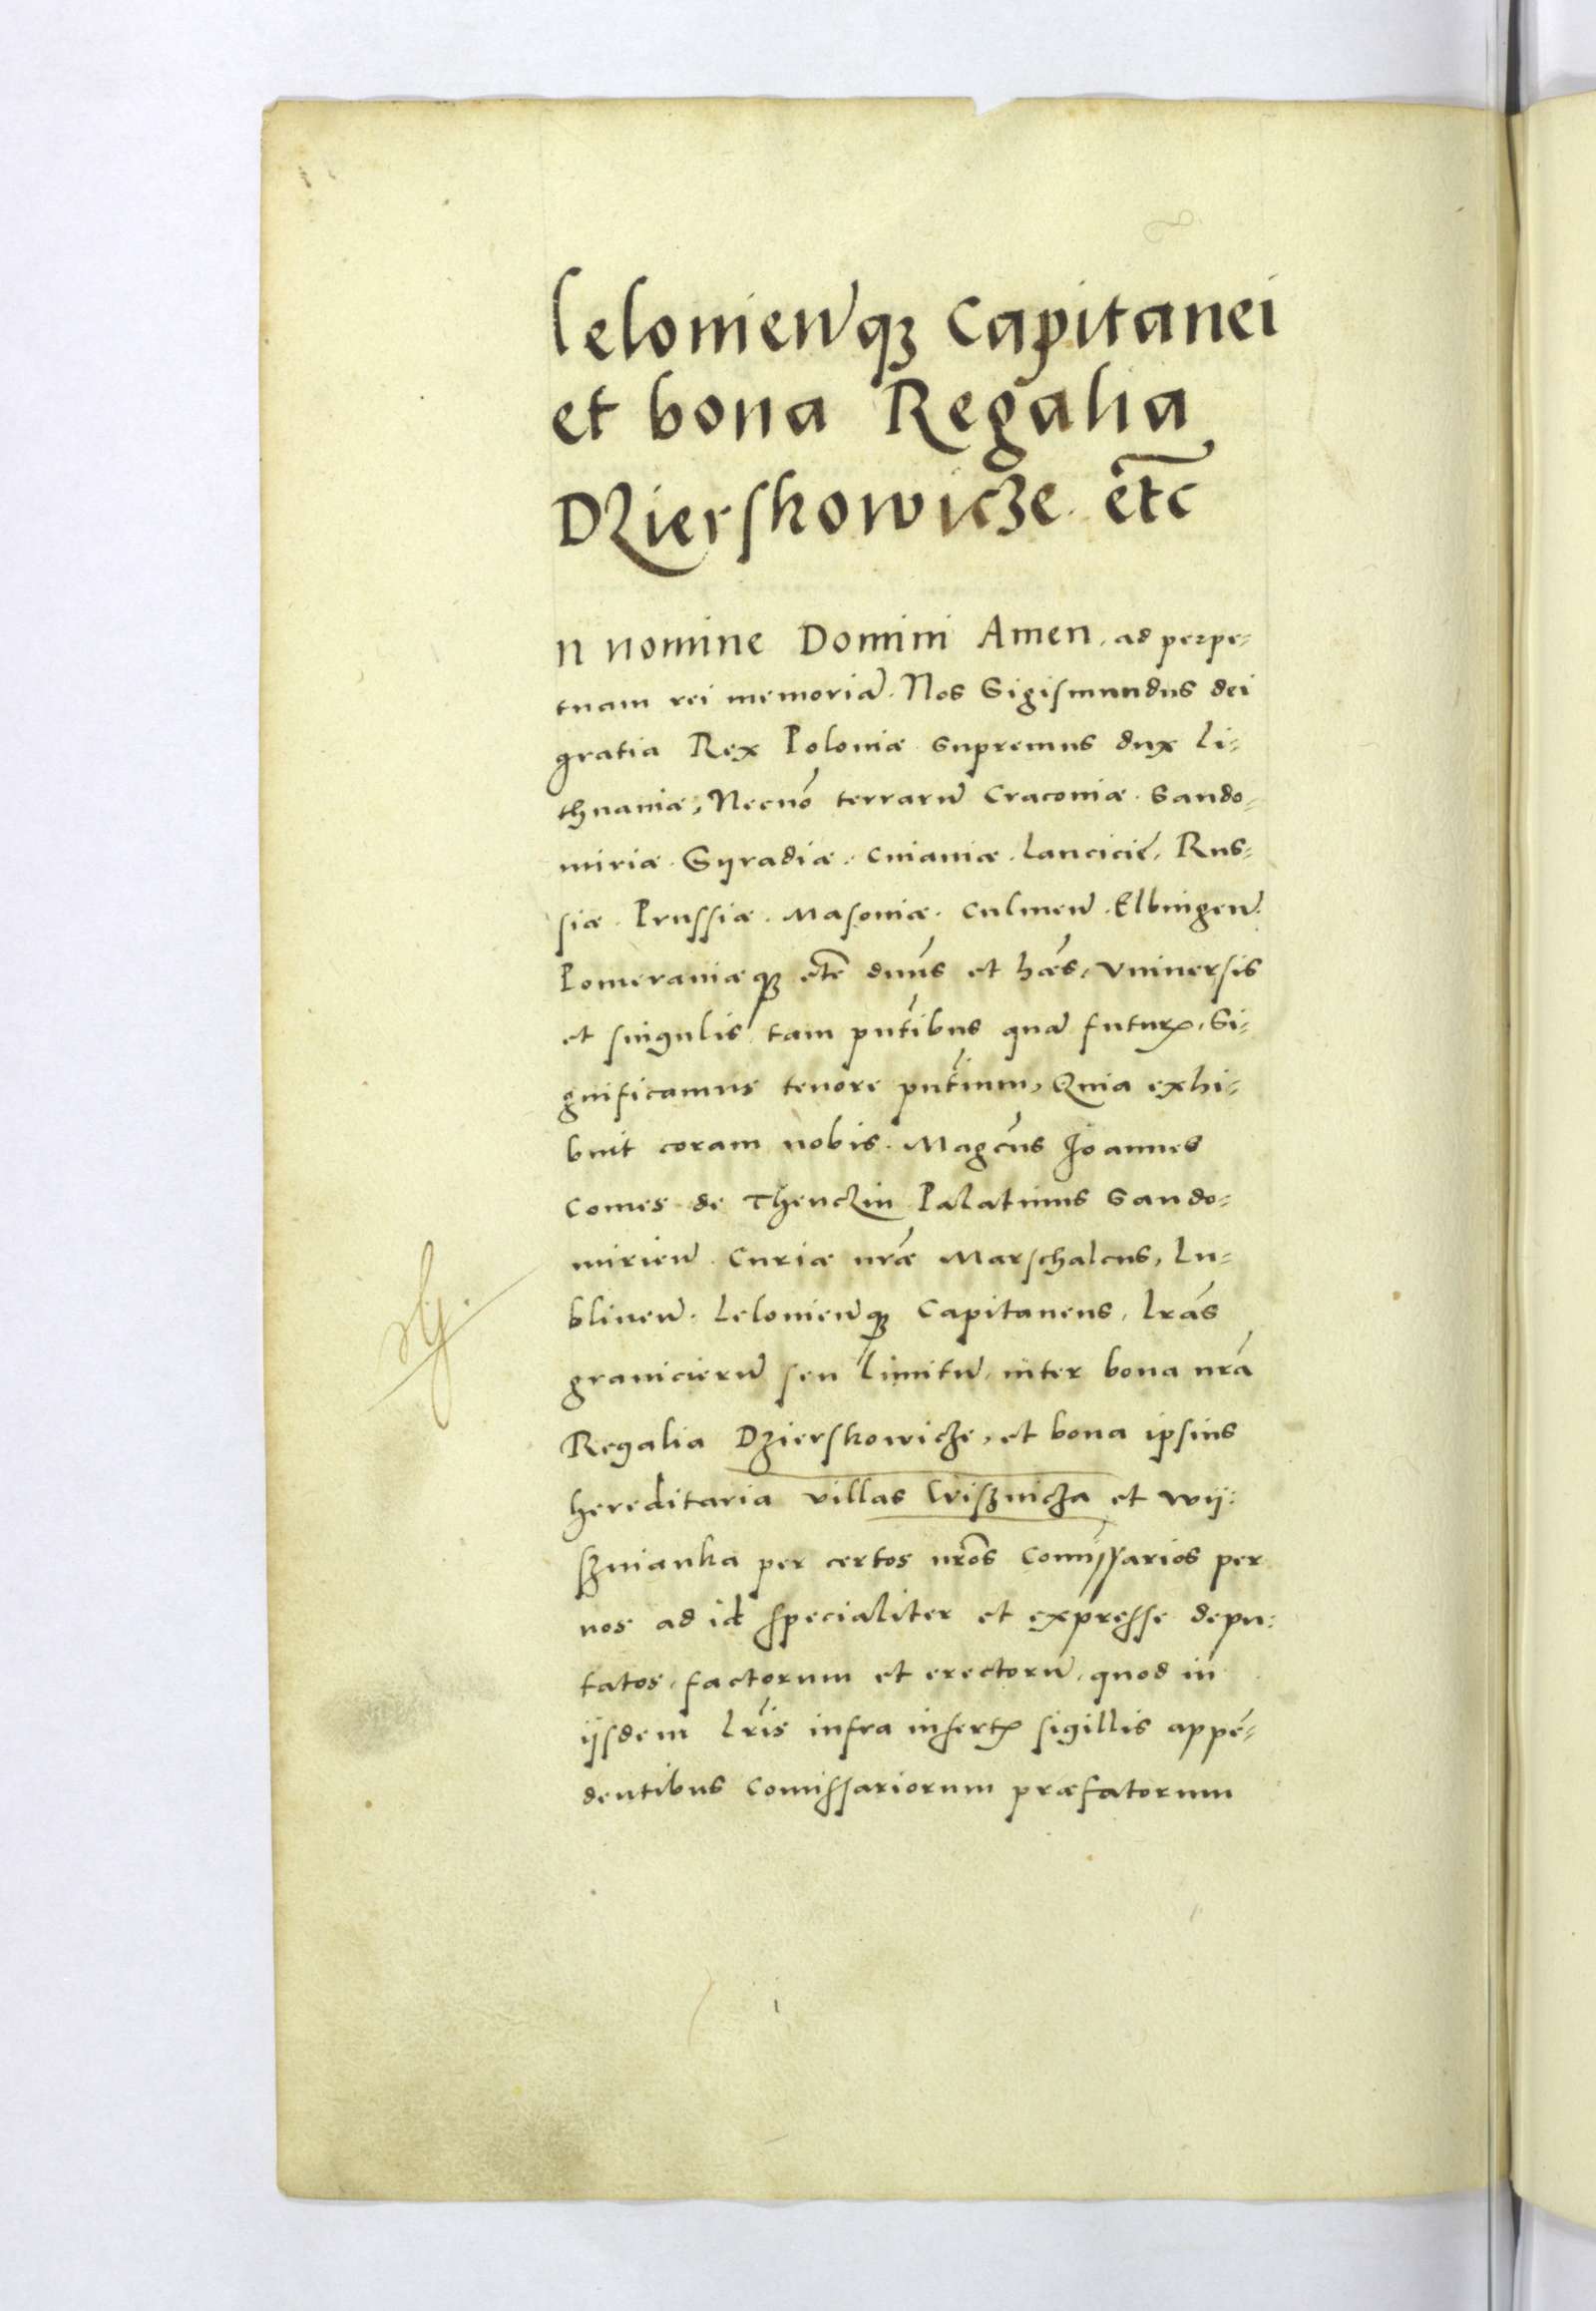 lelonien̄qꝫ Capitanei
et bona Regalia
Dzierskowicze. etc̄
n nomine Domini Amen, ad perpe-
tuam rei memoriā. Nos Sigismundus dei
gratia Rex Poloniæ supremus dux Li-
thuaniæ, Necnō terrarū Cracoviæ. Sando-
miriæ. Syradiæ. Cuiaviæ. Lanciciē. Rus-
siæ. Prussiæ. Masoviæ. Culmen̄. Elbingen̄.
Pomeraniæqꝫ etc̄ dnūs et hæs, Vniversis
et singulis tam pn̄tibus quā futuꝝ, Si-
gnificamus tenore pn̄tium, Quia exhi-
buit coram nobis. Magcūs Joannes
Comes de Thenczin Palatinus Sando-
mirien̄. Curiæ nr̄æ Marschalcus, Lu-
blinen̄. Lelonien̄qꝫ Capitaneus, lrās
granicierū seu limitū, inter bona nrā
Regalia Dzierskowicze, et bona ipsius
hereditaria villas Wisznicza et Wÿ:
sznianka per certos nrōs Comissarios per
nos ad id specialiter et expresse depu:
tatos, factorum et erectorū, quod in
ijsdem lrīs infra insertꝭ sigillis appē-
dentibus Comissariorum præfatorum